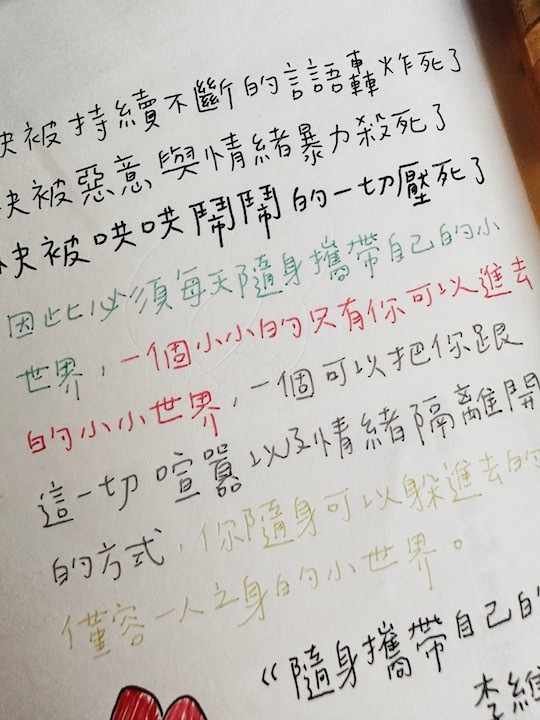 快被持續不斷的言語轟炸死了
快被惡意與情緒暴力殺死了
快被哄哄鬧鬧的一切壓死了
因此必須每天隨身攜帶自己的小
世界，一個小小的只有你可以進去
的小小世界，一個可以把你跟
這一切喧囂以及情緒隔離開
的方式，你隨身可以躲進去的
僅容一人之身的小世界。
《隨身攜帶自己的
李維